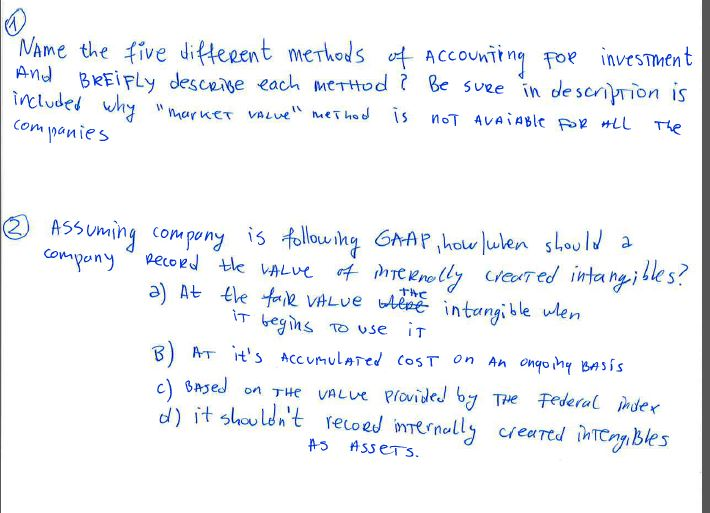 1
Name the five different methods of Accounting for investment
And Breifly describe each method? Be sure in description is
included why "market value" method is not avaiable for all the
companies
2 Assuming company is following GAAP, how/when should a
company record the value of internally created intangibles?
a) At the fair value the intangible when
it begins to use it
B) At it's accumulated cost on an ongoing basis
c) Based on the value provided by the Federal index
d) it shouldn't record internally created intengibles
As Assets.